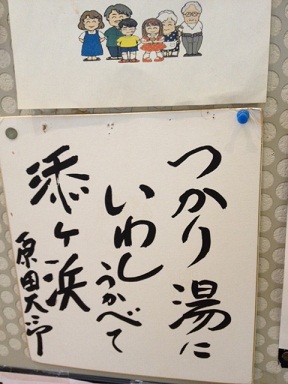 つかり湯に
いわし
うかべて
添ヶ浜
原田大三郎